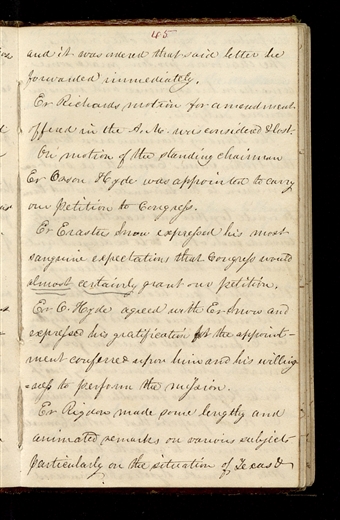 185
and it was ordered that said letter be
forwarded immediately.
Er Richards motion for amendment
offerd in the A.M. was considered & lost.
On motion of the standing chairman
Er Orson Hyde was appointed to carry
our Petition to Congress.
Er Erastus Snow expressed his most
sanguine expectations that Congress would
almost certainly grant our petition.
Er O. Hyde agreed with Er Snow and
expressed his gratification for the appoint-
ment conferred upon him and his willing
-ness to perform the mission.
Er Rigdon made some lengthy and
animated remarks on various subject-
particularly on the situation of Texas &